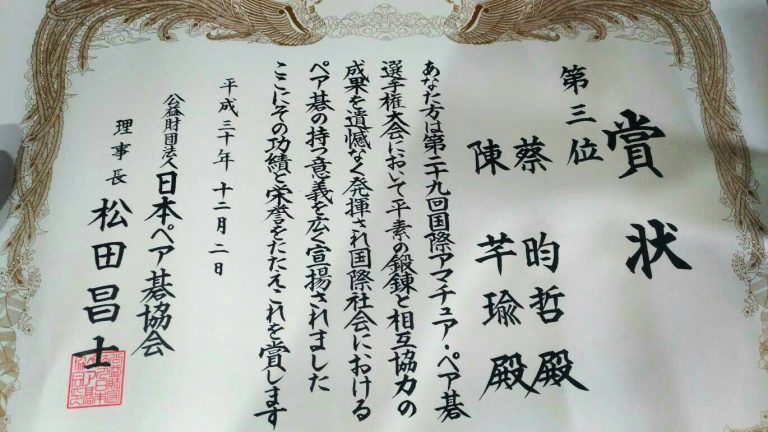 賞状
第三位
蔡昀哲殿
陳芊瑜殿
あなた方は第二十九回国際アマチュア・ペア碁
選手権大会において平素の鍛錬と相互協力の
成果を遺憾なく発揮され国際社会における
ペア碁の持つ意義を広く宣揚されました
ここにその功績と栄誉をたたえこれを賞します
平成三十年十二月二日
公益財団法人日本ペア碁協会
理事長 松田昌士